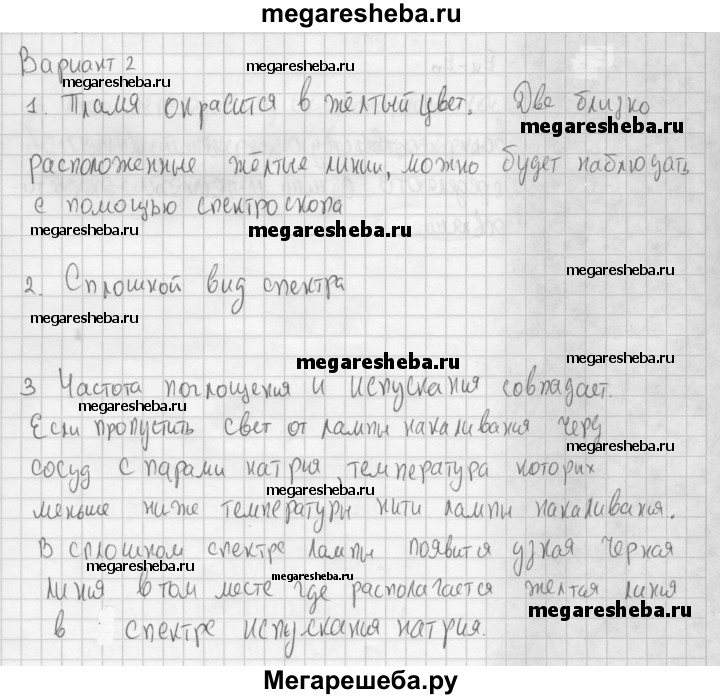 megaresheba.ru
Вариант 2
megaresheba.ru
megaresheba.ru
1. Пламя окрасится в жёлтый цвет. Две близко
megaresheba.ru
расположенные жёлтые линии, можно будет наблюдать
с помощью спектроскопа
megaresheba.ru
megaresheba.ru
megaresheba.ru
2. Сплошной вид спектра
megaresheba.ru
megaresheba.ru
3 Частота поглощения и испускания совпадает.
megaresheba.ru
megaresheba.ru
Если пропустить свет от лампы накаливания черу
megaresheba.ru
сосуд с парами натрия, температура которих
megaresheba.ru
меньше ниже температуры нити лампы накаливания.
В сплошном спектре лампы появится узкая черная
megaresheba.ru
megaresheba.ru
линия в том месте где располагается желтая линия
megaresheba.ru
в спектре испускания натрия.
Мегарешеба.ру